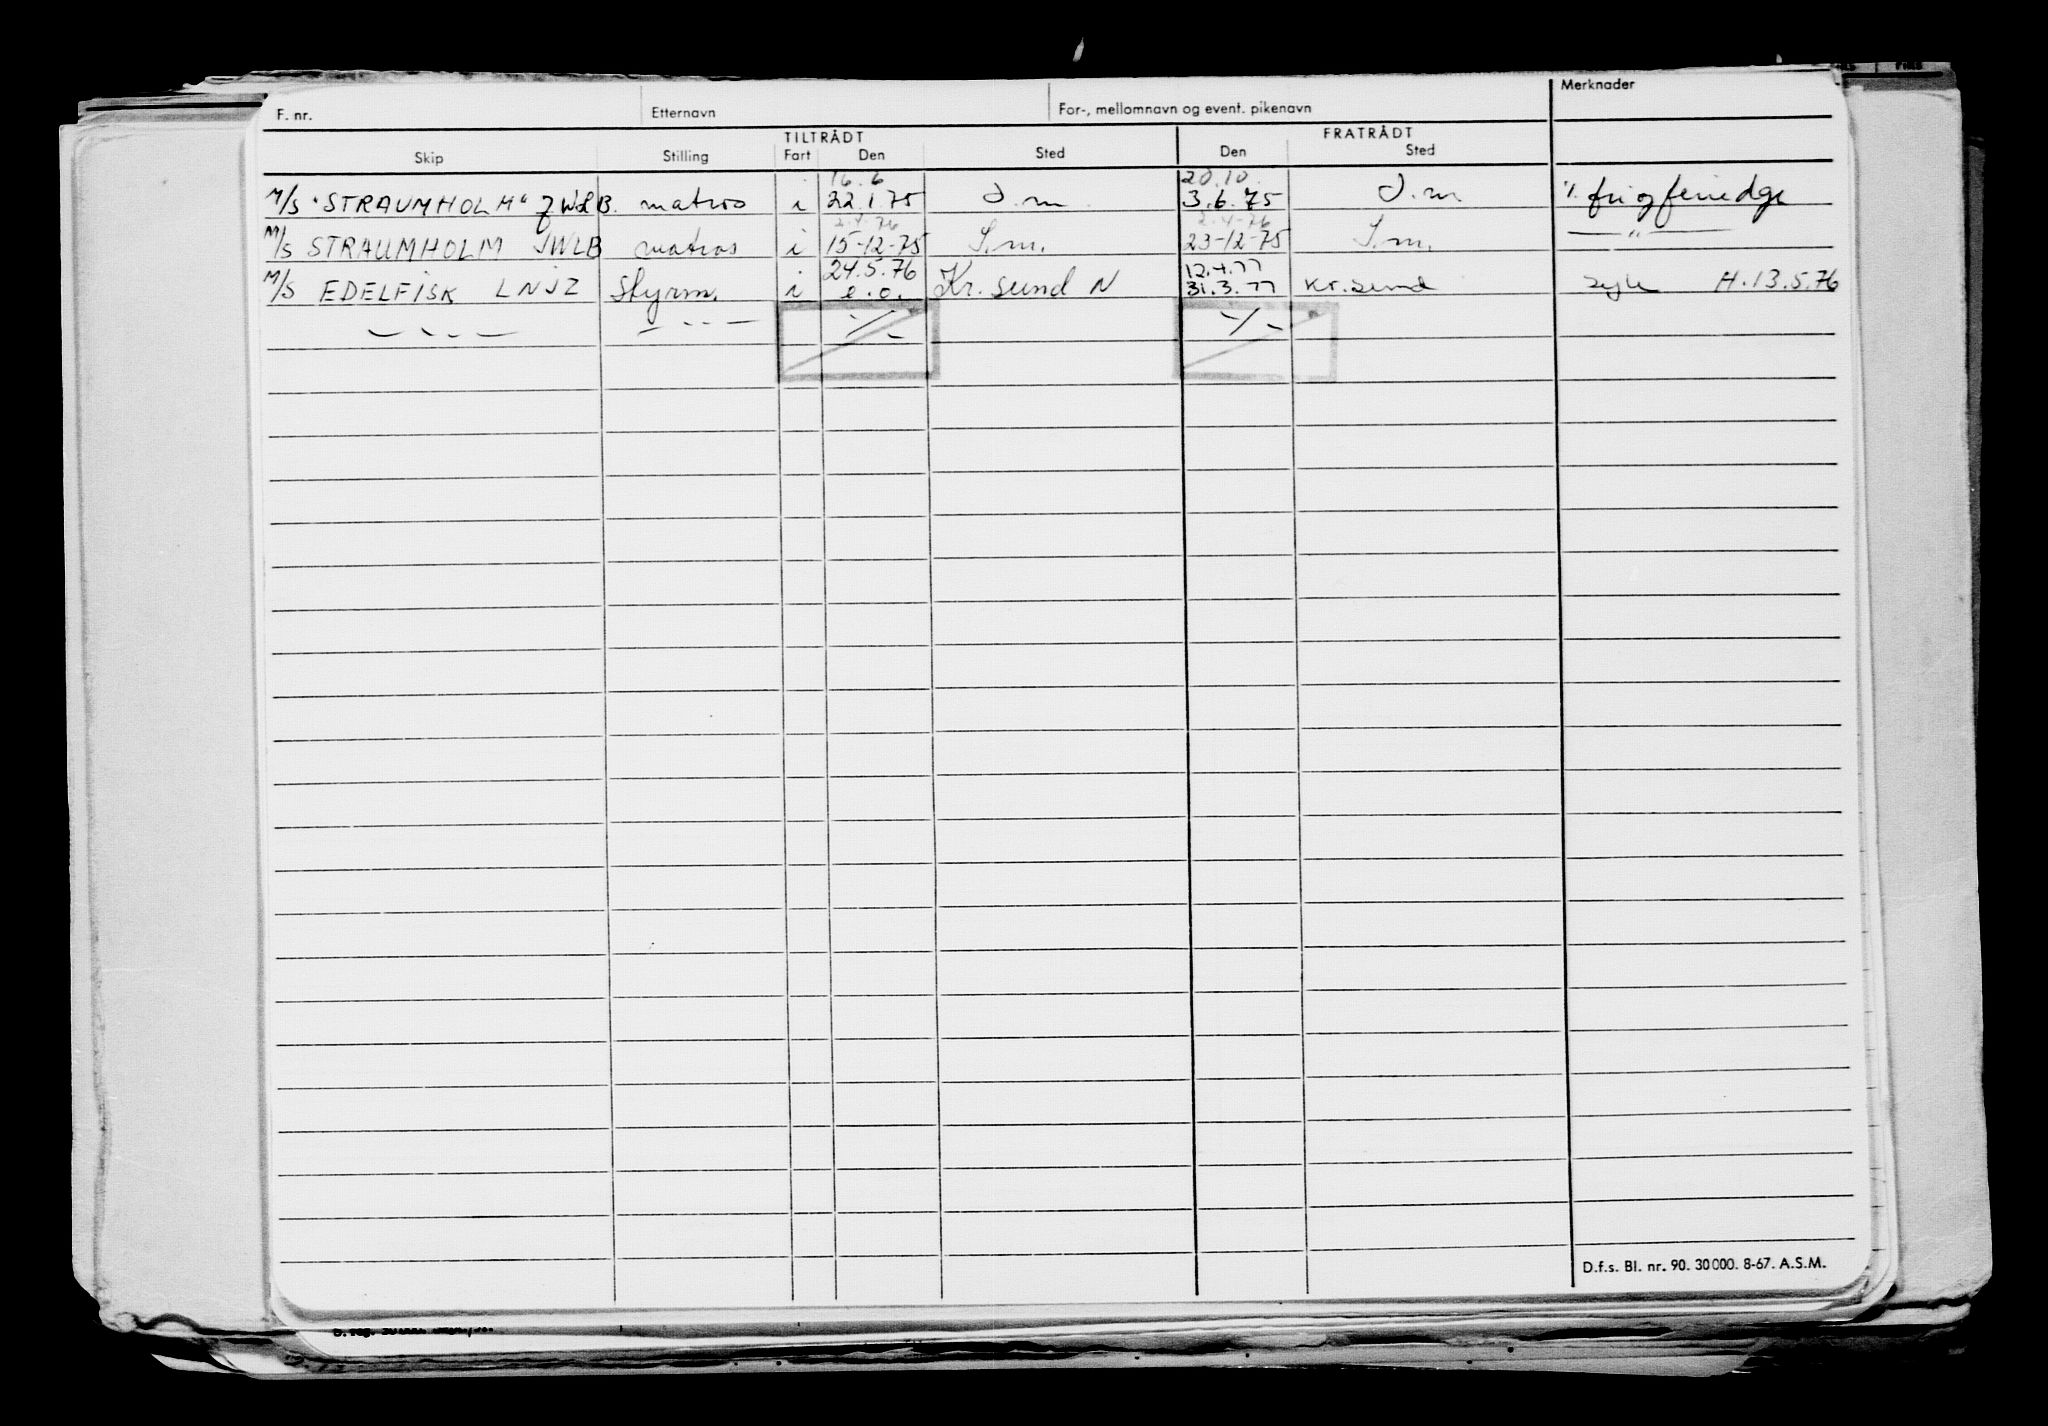 F. nr. Etternavn For-, mellomnavn og event. pikenavn Merknader
TILTRÅDT FRATRÅDT
Skip Stilling Fart Den Sted Den Sted
16.6 20.10.
M/S "STRAUMHOLM" JWLB. matros i 22.1.75 S.m. 3.6.75 S.m. %. fri og feriedge
2.4.76 2.4.76
M/S STRAUMHOLM JWLB matros i 15-12-75 S.m. 23-12-75 S.m. — " —
24.5.76 12.4.77
M/S EDELFISK LNJZ Styrm. i e.o. Kr.sund N 31.3.77 Kr.sund H.13.5.76
— " — — " — -/- -/-
D.f.s. Bl. nr. 90. 30 000. 8-67. A.S.M.